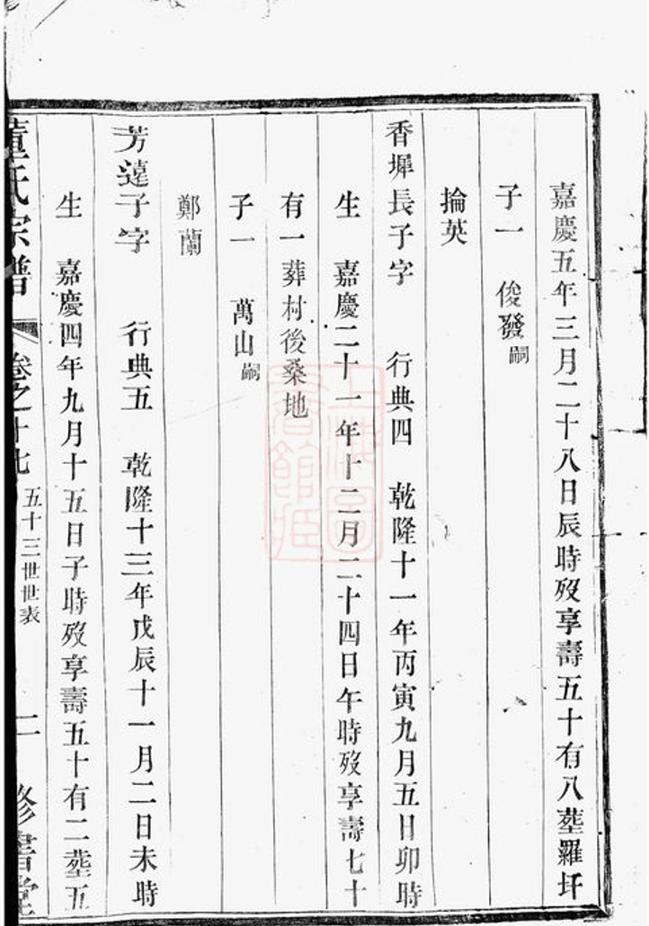 嘉慶五年三月二十八日辰時歿享壽五十有八塟羅圩
子一 俊發嗣
掄英
香墀長子字 行典四 乾隆十一年丙寅九月五日卯時
生 嘉慶二十一年十二月二十四日午時歿享壽七十
有一葬村後桑地
子一 萬山嗣
鄭蘭
芳遠子字 行典五 乾隆十三年戊辰十一月二日未時
生 嘉慶四年九月十五日子時歿享壽五十有二塟五
董氏宗譜 卷之十七 五十三世世表 二 修書堂